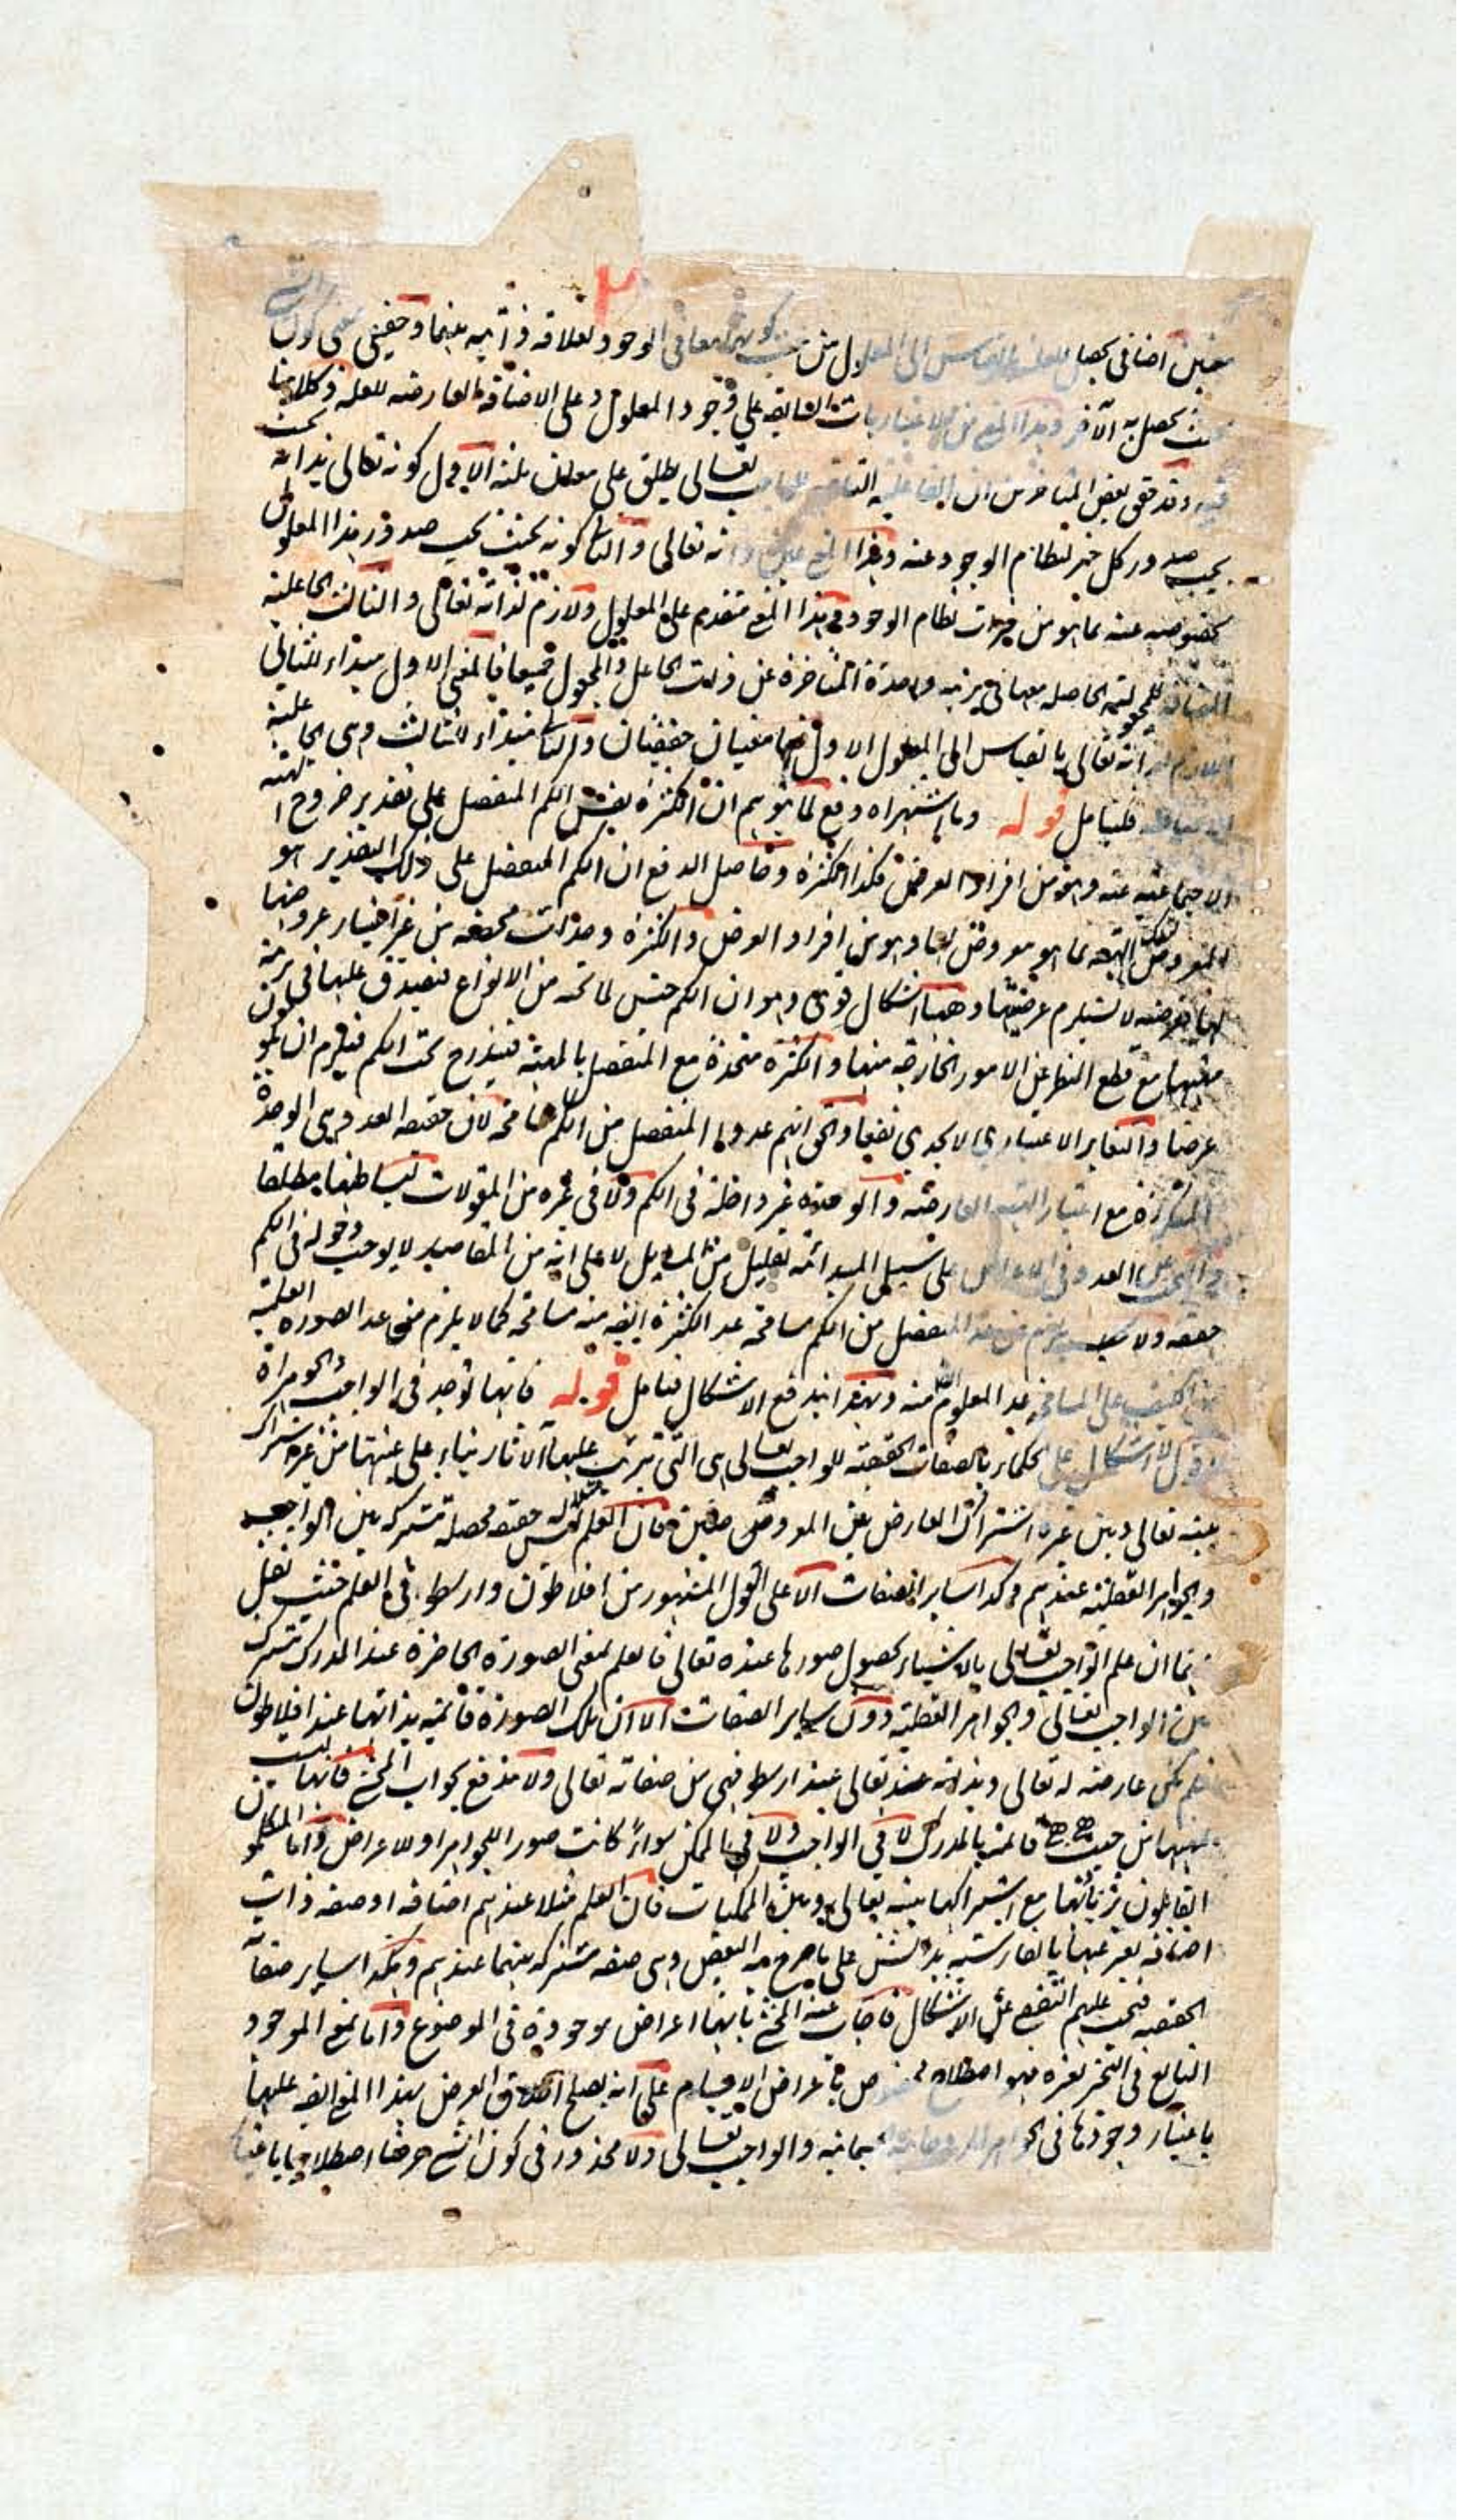 معنيين اضافى يحصل للعلة بالقياس الى المعلول من حيث كونهما معا فى الوجود لعلاقة ذاتية بينهما وحقيقى بمعنى كون
بحيث يحصل به الآخر وهذا المعنى من الاعتباريات السابقة على وجود المعلول وعلى الاضافة العارضة للعلة وكلامنا
فيه وقد حقق بعض المتاخرين ان الفاعلية الثابتة للواجب تعالى يطلق على معان ثلثة الاول كونه تعالى بذاته بحيث
يجب صدور كل خير لنظام الوجود عنه وهذا المعنى عين ذاته تعالى والثانى كونه بحيث يجب صدور هذا المعلول
بخصوصه عنه بما هو من خيرات نظام الوجود وهذا المعنى متقدم على المعلول ولازم لذاته تعالى والثالث الجاعلية
المضافة للمجعولية الحاصلة معها فى مرتبة واحدة المتاخرة عن ذات الجاعل والمجعول جميعا فالمعنى الاول مبداء للثانى
اللازم لذاته تعالى بالقياس الى المعلول الاول فهما معنيان حقيقيان والثانى مبداء للثالث وهى الجاعلية
الاضافية فليتامل قوله وما اشتهر اه دفع لما يتوهم ان الكثرة نفس الكم المنفصل على تقدير خروج الهيئة
الاجتماعية عنه وهو من افراد العرض فكذا الكثرة وحاصل الدفع ان الكم المنفصل على ذلك التقدير هو
المعروض لتلك الهيئة بما هو معروض لها وهو من افراد العرض والكثرة وحدات محضة من غير اعتبار عروضها
لها فعرضيته لا يستلزم عرضيتها وههنا اشكال قوى وهو ان الكم جنس لما تحته من الانواع فيصدق عليها فى مرتبة
مهيتها مع قطع النظر عن الامور الخارجة منها والكثرة متحدة مع المنفصل بالمهية فيندرج تحت الكم فيلزم ان يكون
عرضا والتغاير الاعتبارى لا يجدى نفعا والحق انهم عدوا المنفصل من الكم مسامحة لان حقيقة العدد وهى الوحدة
المتكررة مع اعتبار الهيئة العارضة والوحدة غير داخلة فى الكم ولا فى غيره من المقولات لبساطتها مطلقا
والبحث عن العدد فى الاعراض على سبيل المبدائية لا على انه من المقاصد لا يوجب دخوله فى الكم
حقيقة ولا يلزم من عد المنفصل من الكم مسامحة عد الكثرة ايضا منه مسامحة كما لا يلزم من عد الصورة العلمية
من الكيف على المسامحة عد المعلوم منه وبهذا اندفع الاشكال فتامل قوله فانها توجد فى الواجب والجوهر اه
اقول لا اشكال على الحكماء بالصفات الحقيقية للواجب تعالى اى التى يترتب عليها الآثار بناء على عينيتها من غير اشتراك
بينه تعالى وبين غيره اشتراك العارض بين المعروضين فان العلم مثلا ليس له حقيقة محصلة مشتركة بين الواجب
والجواهر العقلية عندهم وكذا ساير الصفات الا على القول المشهور من افلاطون وارسطو فى العلم حيث نقل
عنهما ان علم الواجب تعالى بالاشياء بحصول صورها عنده تعالى فالعلم بمعنى الصورة الحاضرة عند المدرك مشترك
بين الواجب تعالى والجواهر العقلية دون ساير الصفات الا ان تلك الصورة قائمة بذاتها عند افلاطون
فلم يكن عارضة له تعالى وبذاته تعالى عند ارسطو فهى من صفاته تعالى ولا يندفع بجواب المحشى فانها ليست
من حيث هى هى قائمة بالمدرك لا فى الواجب ولا فى الممكن سواء كانت صور اللجواهر او للاعراض واما المتكلمون
القايلون بزيادتها مع اشتراكها بينه تعالى وبين الممكنات فان العلم مثلا عندهم اضافة او صفة ذات
اضافة يعبر عنها بالفارسية بدانستن على ما صرح به البعض وهى صفة مشتركة بينهما عندهم وهكذا ساير صفاته
الحقيقية فيجب عليهم التفصى عن الاشكال فاجاب عنه المحشى بانها اعراض موجودة فى الموضوع واما بمعنى الموجود
التابع فى التحيز لغيره فهو اصطلاح مخصوص باعراض الاجسام على انه يصلح اطلاق العرض بهذا المعنى ايضا عليها
باعتبار وجودها فى الجواهر الجسمانية والواجب تعالى ولا محذور فى كون الشىء عرضا اصطلاحيا باعتبار